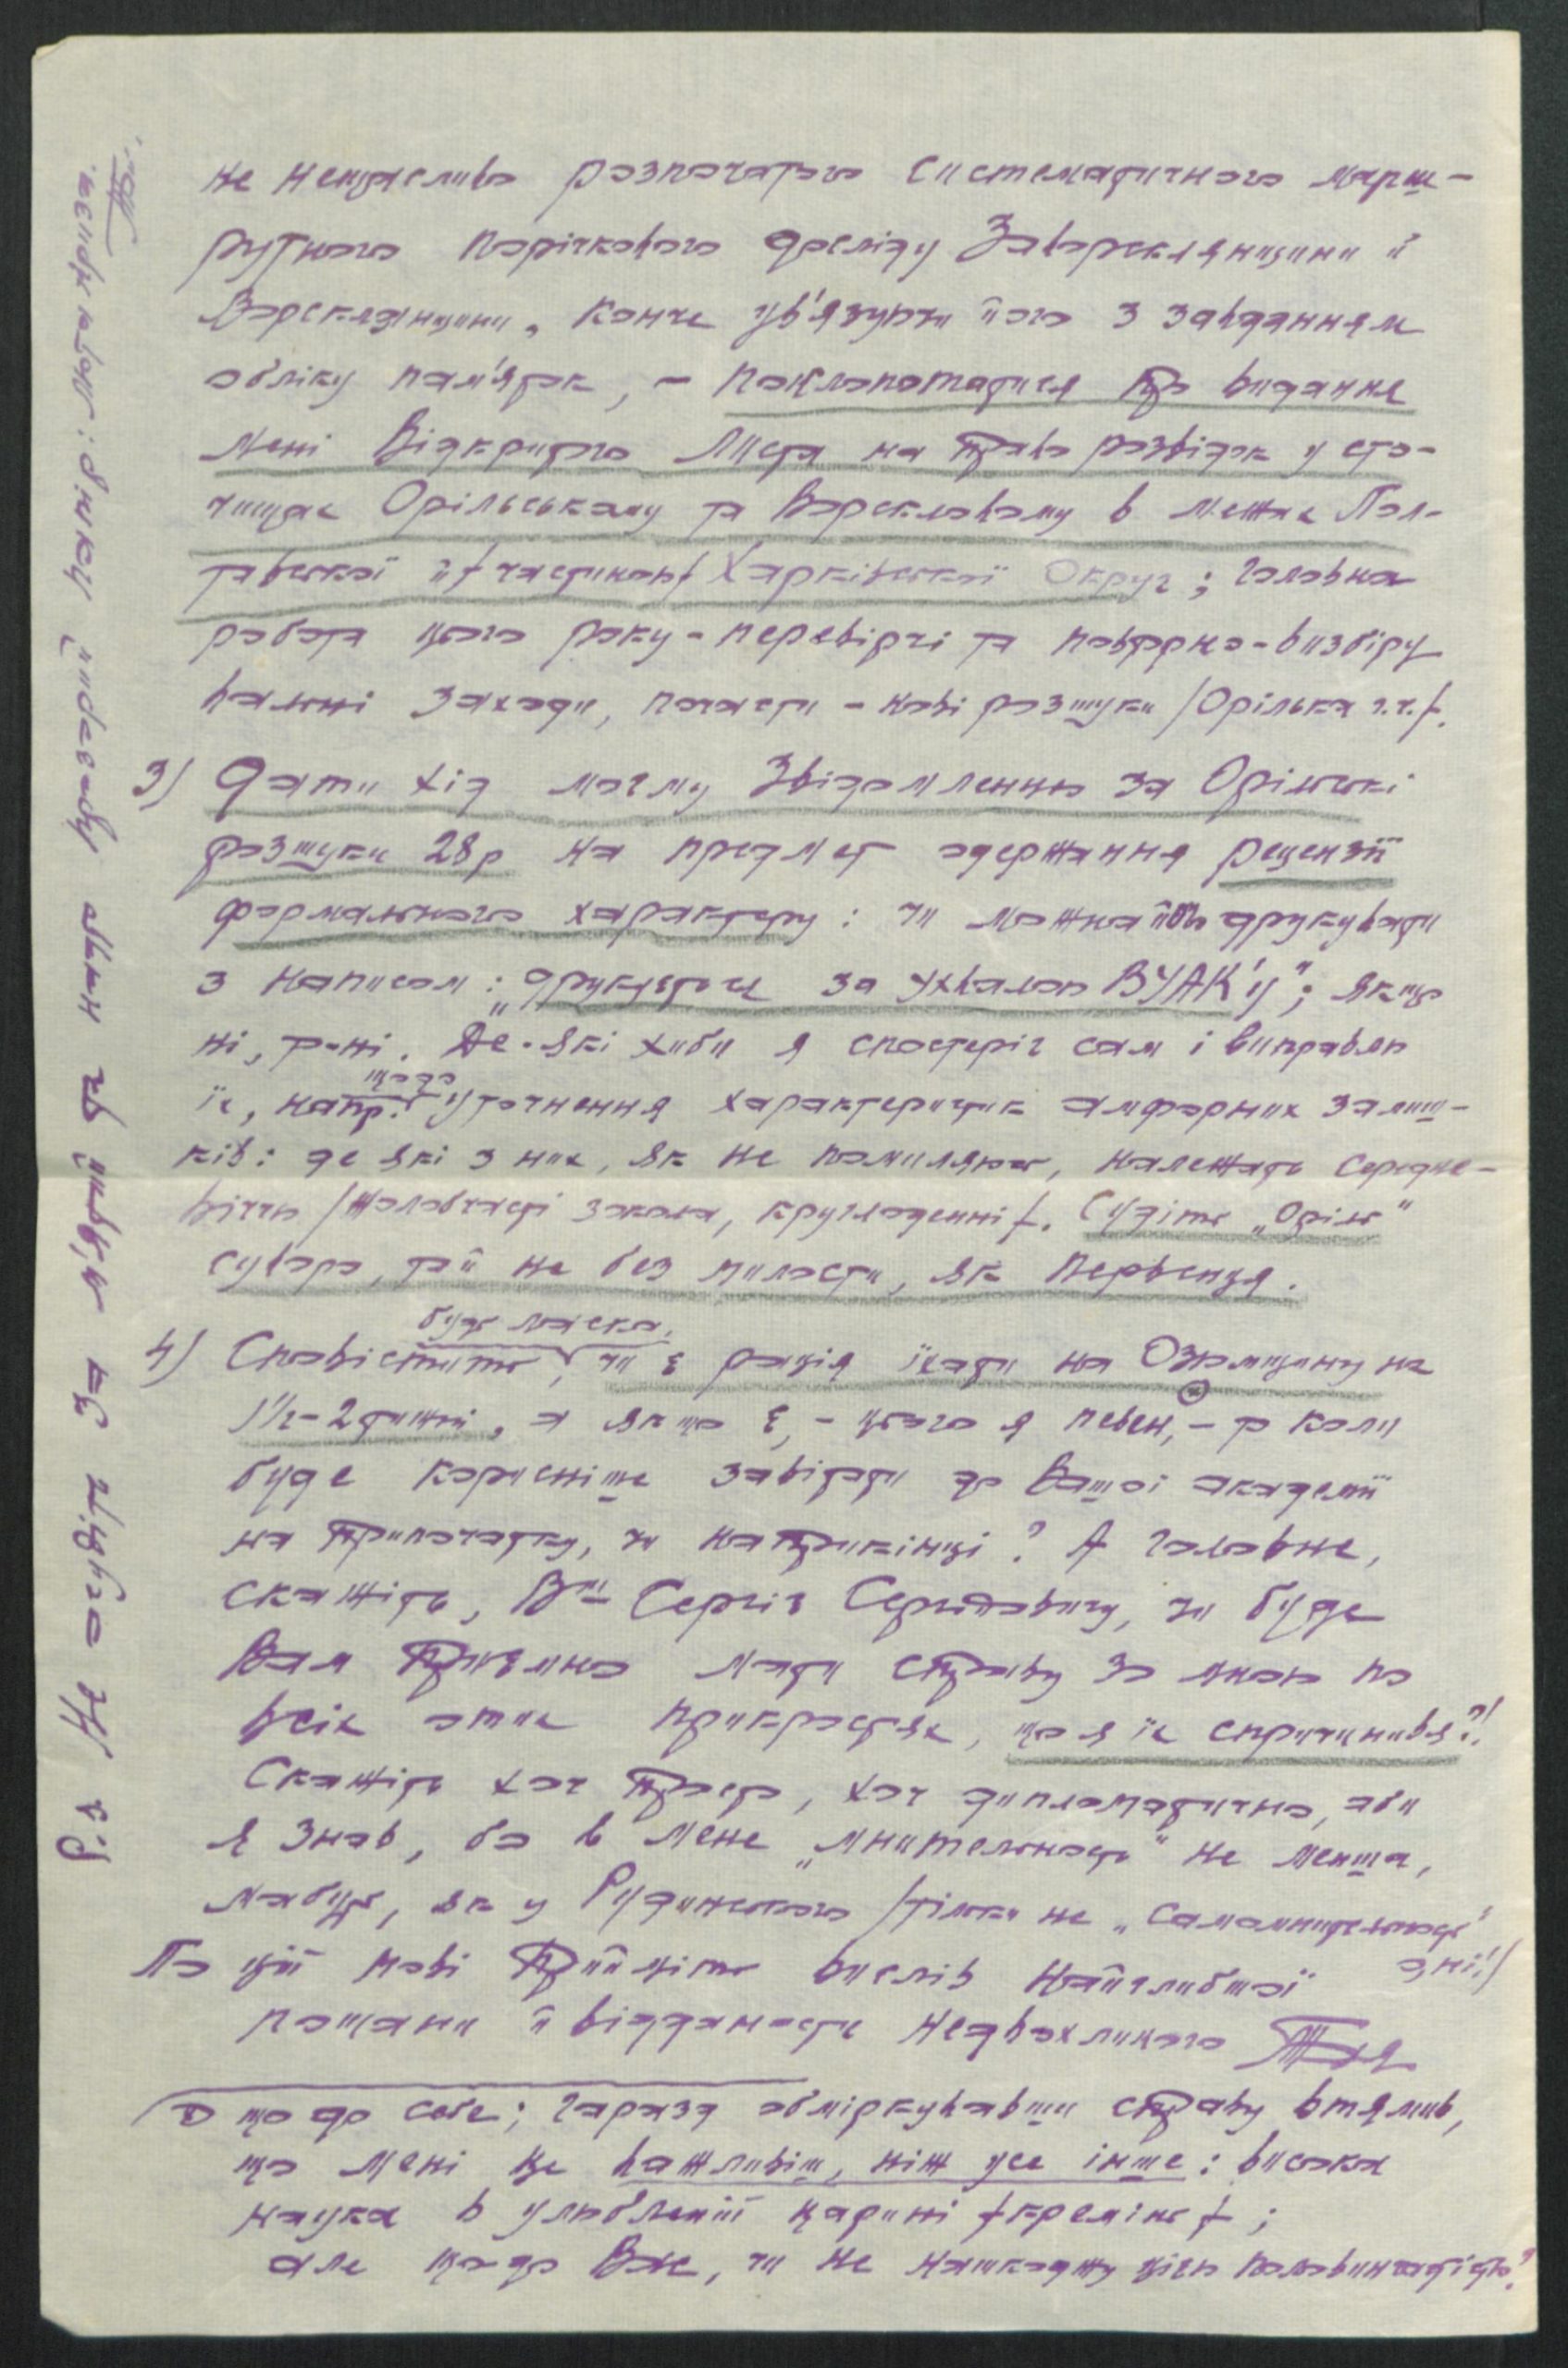 не нещасливо розпочатого систематичного марш-
рутного порічкового досліду Заворсклянщини й
Ворсклянщини, конче ув'язуючи його з завданням
обліку пам'яток, – поклопотатися про видання
мені Відкритого Листа на право розвідок у сто-
чищах Орільському та Ворскловому в межах Пол-
тавської й /частиною/ Харківської Округ; головна
робота цього року – перевірчі та повторно-визбіру
вальні заходи, почасти – нові розшуки /Орілька г.ч./.
3) Дати хід моєму Звідомленню за Орільські
розшуки 28р на предмет одержання рецензії
формального характеру: чи можна його друкувати
з написом: „друкується за ухвалою ВУАК'у"; якщо
ні, то-ні. Де-які хиби я спостеріг сам і виправлю
їх, напр. щодо уточнення характеристик амфорних залиш-
ків: де які з них, як не помиляюсь, належать середнє-
віччю /жолобчасті зокола, круглоденні/. Судіть „Оріль"
суворо, та й не без милости, як первенця.
4) Сповістить, будь ласка, чи є рація їхати на Озюмщину на
1½-2 тижні, а якщо є, – цього я певен, – то коли
буде корисніше завітати до Вашої академії
на припочатку, чи наприкінці? А головне,
скажіть, Вш Сергій Сергійовичу, чи буде
Вам приємно мати справу зо мною по
всіх отих прикростях, що я їх спричинився?!
Скажіть хоч просто, хоч дипломатично, аби
я знав, бо в мене „мнительность" не менша,
мабуть, як у Рудинського /тільки не „самомнительность"
о, ні!/
По цій мові прийміть вислів найглибшої
пошани й відданости недвохличного
що до себе; гаразд обміркувавши справу втямив,
що мені це важливіш, ніж усе інше: висока
наука в улюбленій царині /кремінь/;
але що до Вас, чи не нашкоджу цією половинчастістю?